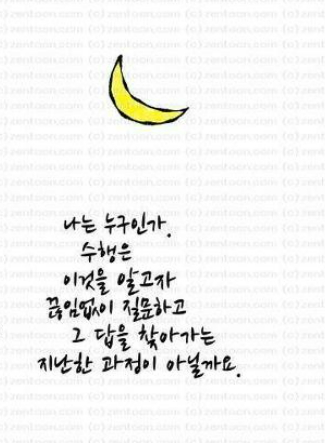 나는 누구인가.
수행은
이것을 알고자
끊임없이 질문하고
그 답을 찾아가는
지난한 과정이 아닐까요.